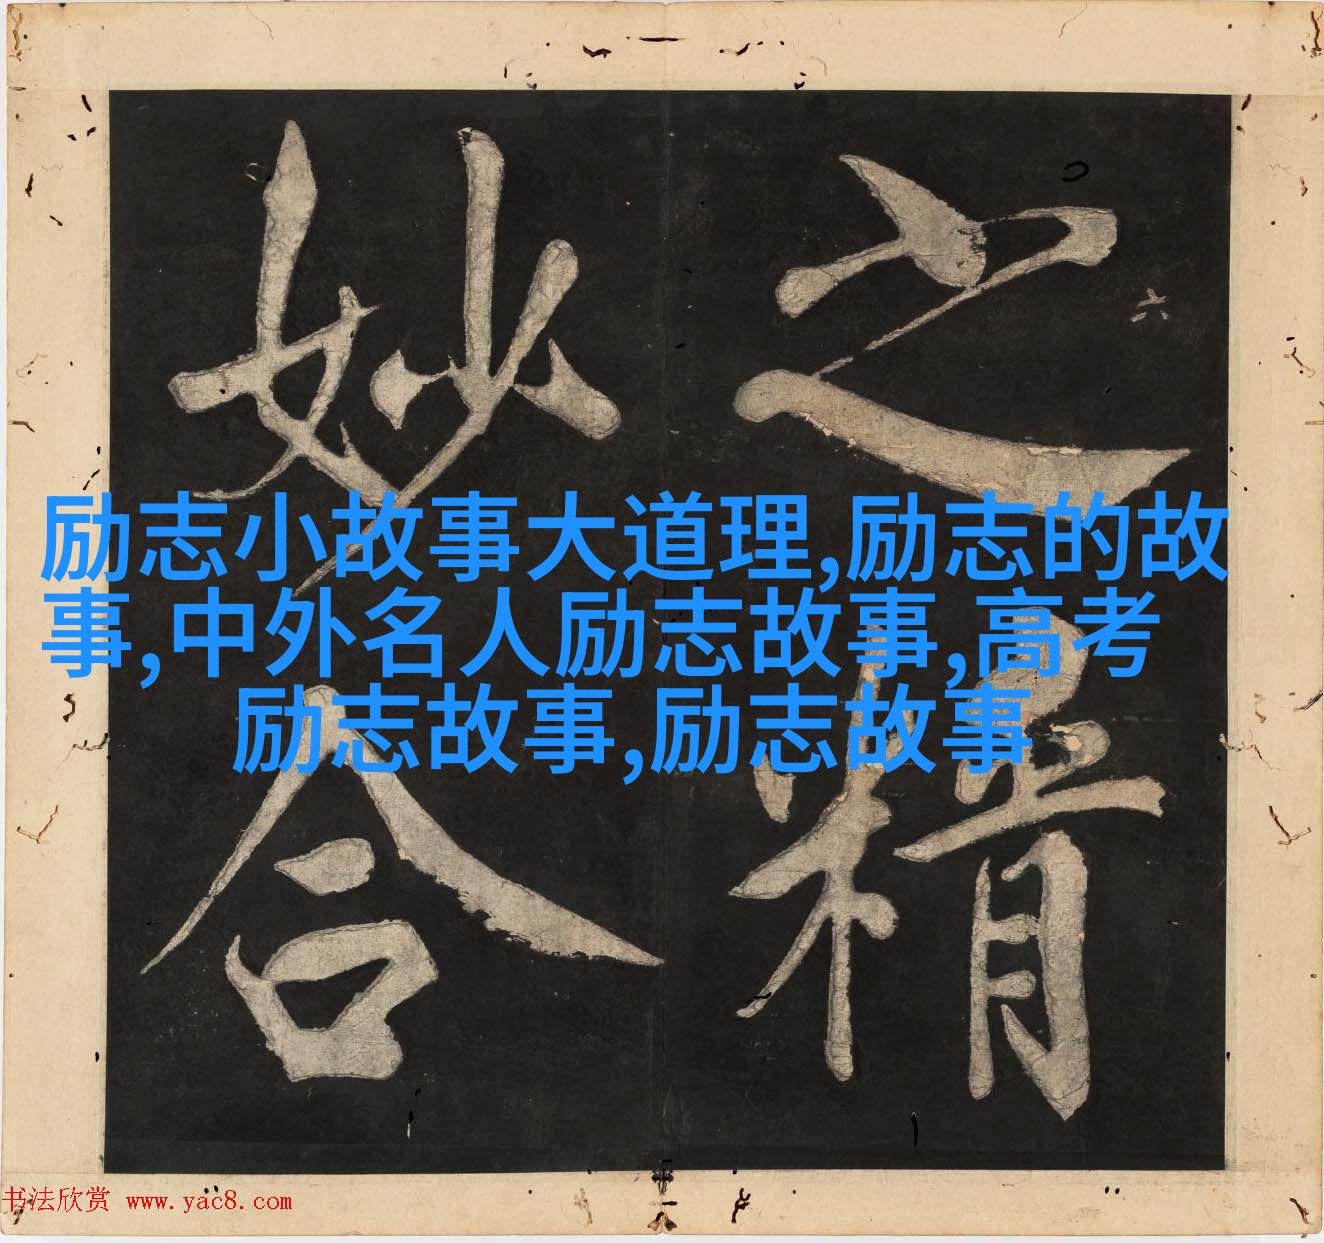 之精
妙合
六
励志小故事大道理,励志的故
事,中外名人励志故事,高考
励志故事,励志故事
书法欣赏 www.yac8.com